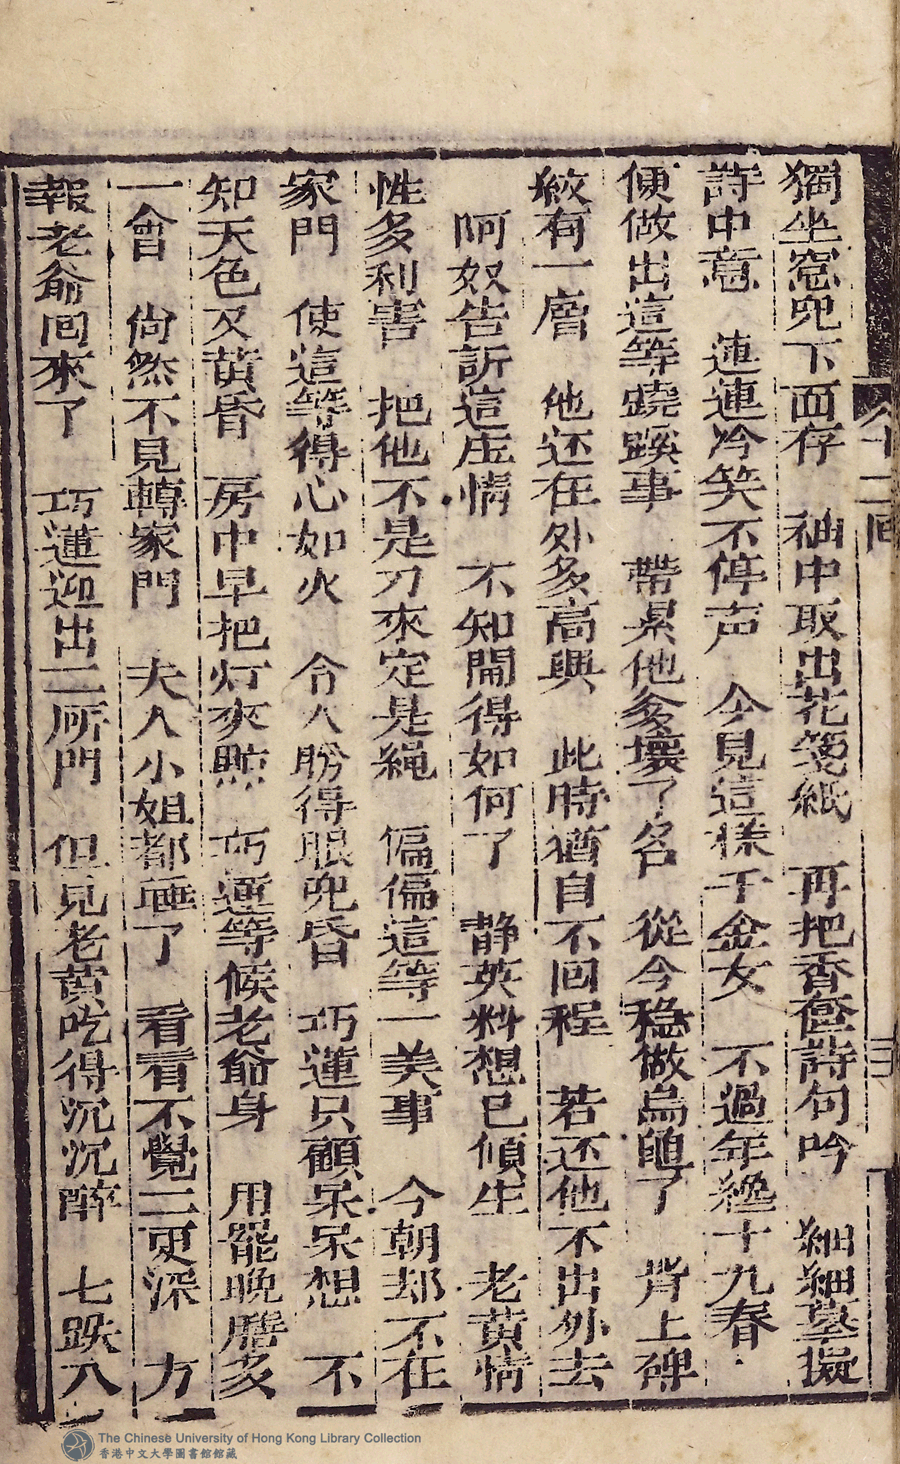 獨坐窓兜下面存　袖中取出花箋紙　再把香奩詩句吟　細細摹擬
詩中意　連連冷笑不停声　今見這樣千金女　不過年絶十九春
便做出這等蹺蹊事　帶累他爹壞了名　從今穩做烏龜了　背上碑
紋有一層　他还在外多高興　此時猶自不囬程　若还他不出外去
阿奴告訴這庄情　不知鬧得如何了　静英料想已傾生　老黄情
性多利害　把他不是刀來定是繩　偏偏這等一美事　今朝却不在
家門　使這等得心如火　令人盼得眼兜昏　巧蓮只顧呆呆想　不
知天色又黄昏　房中早把灯來照　巧蓮等候老爺身　用罷晚膳多
一會　尙然不見轉家門　夫人小姐都睡了　看看不覺二更深　方
報老爺囬來了　巧蓮迎出二所門　但見老黄吃得沉沉醉　七跌八
十二囬
三
The Chinese University of Hong Kong Library Collection
香港中文大學圖書館館藏